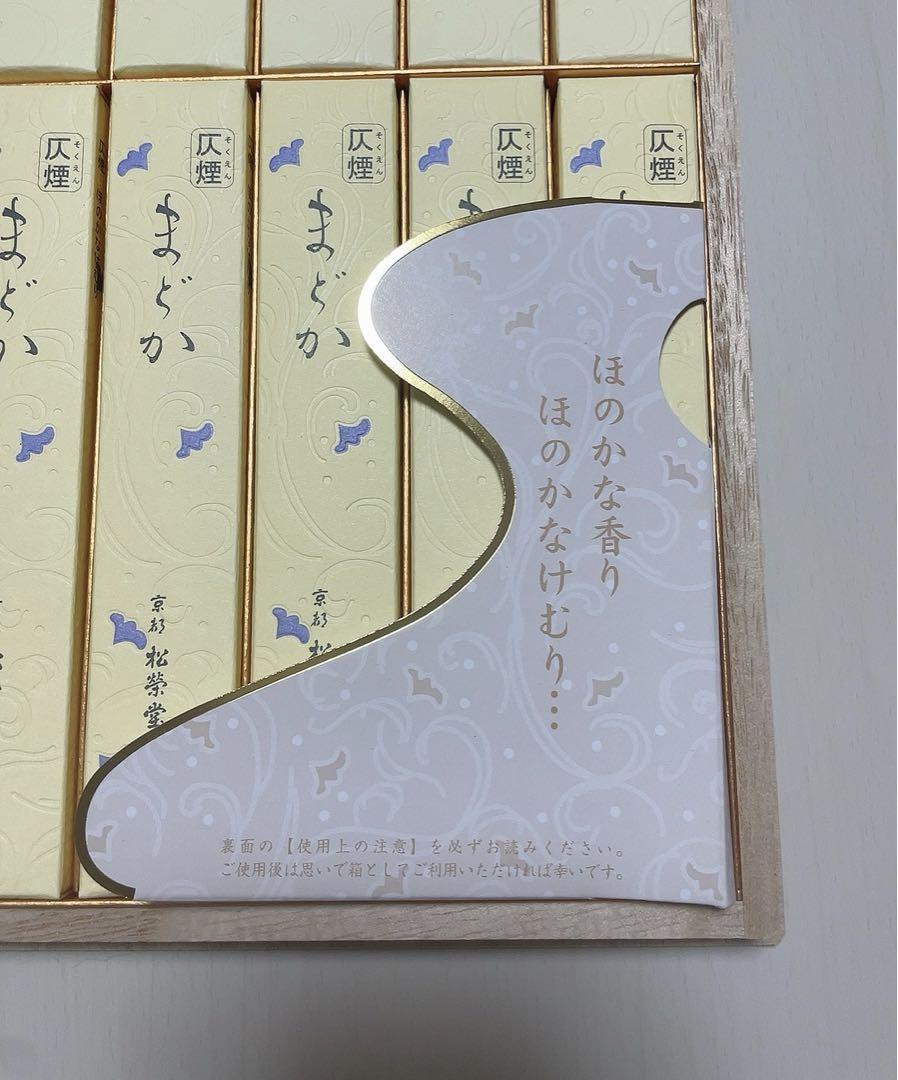 仄煙
そくえん
まどか
仄煙
そくえん
まどか
京都 松榮堂
仄煙
そくえん
まどか
京都 松
仄煙
そくえん
仄煙
そくえん
ほのかな香り
ほのかなけむり…
裏面の【使用上の注意】を必ずお読みください。
ご使用後は思いで箱としてご利用いただければ幸いです。